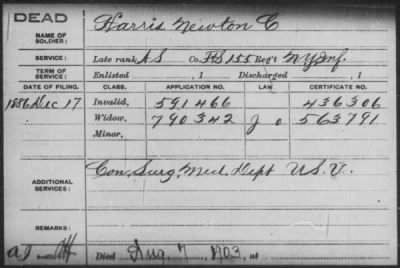 DEAD
NAME OF SOLDIER: Harris Newton C
SERVICE: Late rank A S Co. F&S 155 Reg't N.Y. Inf.
TERM OF SERVICE: Enlisted , 1 Discharged , 1
DATE OF FILING. CLASS. APPLICATION NO. LAW. CERTIFICATE NO.
1886 Dec 17 Invalid, 591466 436306
Widow, 790342 563791
Minor,
ADDITIONAL SERVICES: Con. Surg. Med. Dept U.S.V.
REMARKS:
Died Aug 7, 1903, at